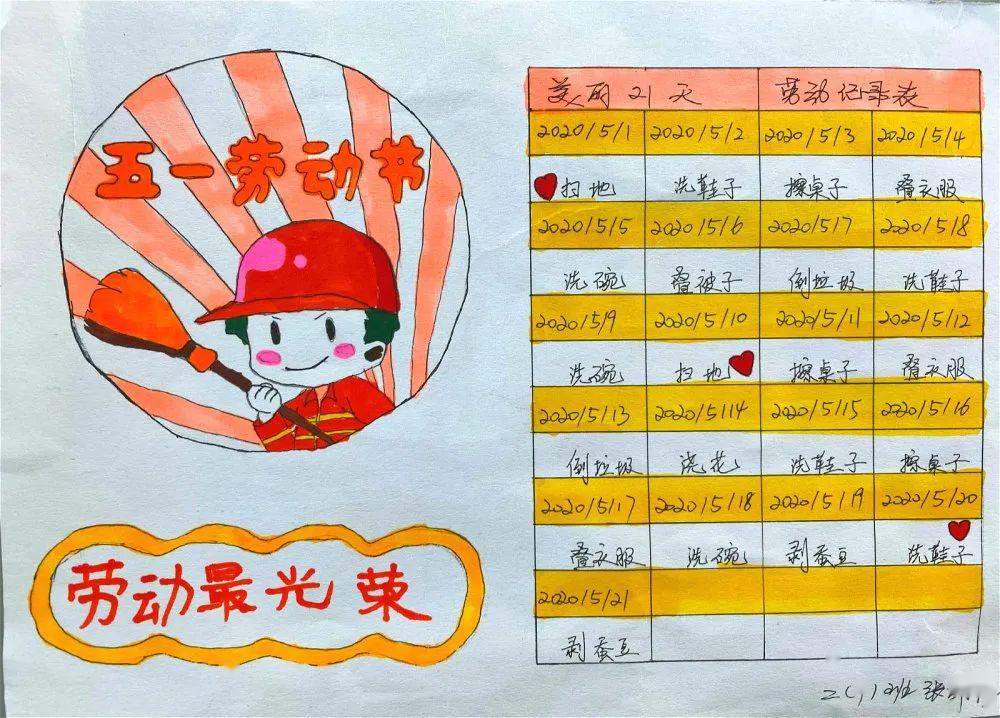 五一劳动节
劳动最光荣
美丽21天 劳动记录表
2020/5/1 2020/5/2 2020/5/3 2020/5/4
扫地 洗鞋子 擦桌子 叠衣服
2020/5/5 2020/5/6 2020/5/7 2020/5/8
洗碗 叠被子 倒垃圾 洗鞋子
2020/5/9 2020/5/10 2020/5/11 2020/5/12
洗碗 扫地 擦桌子 叠衣服
2020/5/13 2020/5/14 2020/5/15 2020/5/16
倒垃圾 浇花 洗鞋子 擦桌子
2020/5/17 2020/5/18 2020/5/19 2020/5/20
叠衣服 洗碗 剥蚕豆 洗鞋子
2020/5/21
剥蚕豆
二(1)班 张